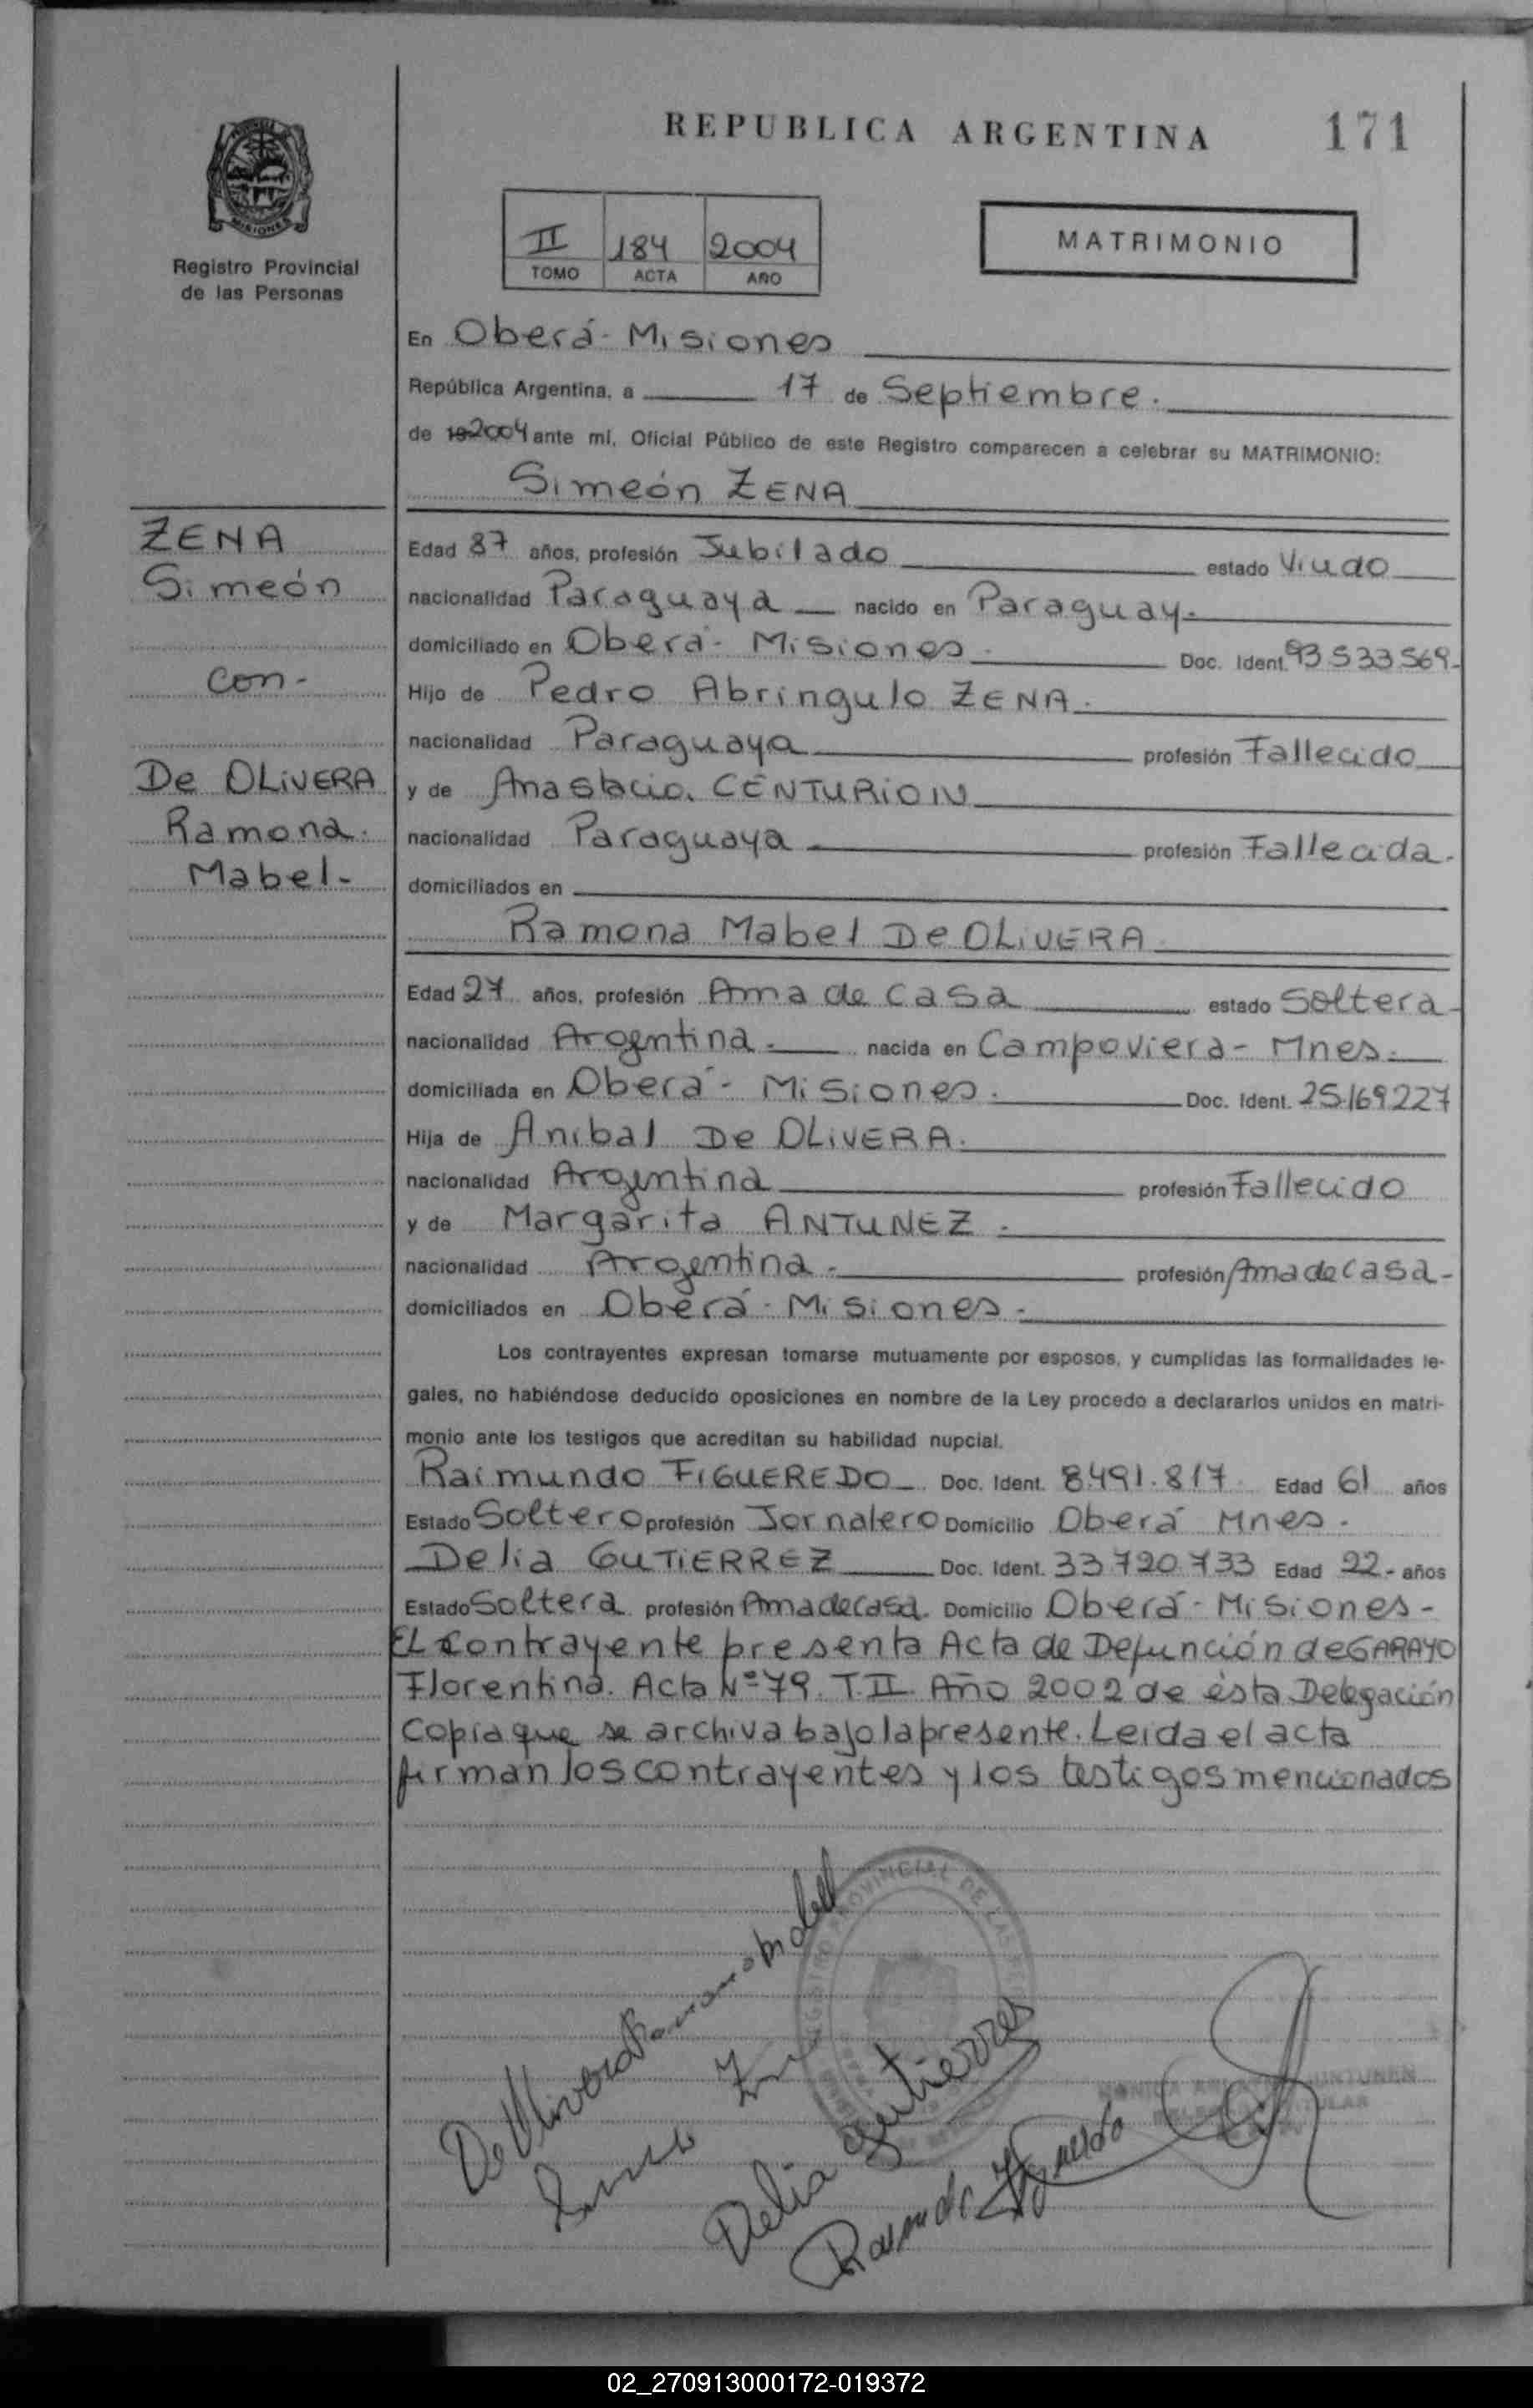 REPUBLICA ARGENTINA 171
MISIONES
Registro Provincial
de las Personas
II 184 2004
TOMO ACTA AÑO
MATRIMONIO
En Oberá - Misiones
República Argentina, a 17 de Septiembre.
de 19 2004 ante mí, Oficial Público de este Registro comparecen a celebrar su MATRIMONIO:
Simeón ZENA
ZENA
Simeón
con-
De OLiVERA
Ramona.
Mabel-
Edad 87 años, profesión Jubilado estado Viudo
nacionalidad Paraguaya nacido en Paraguay-
domiciliado en Oberá - Misiones - Doc. Ident. 93.533.569-
Hijo de Pedro Abringulo ZENA.
nacionalidad Paraguaya profesión Fallecido
y de Anastacia. CENTURiON
nacionalidad Paraguaya profesión Fallecida.
domiciliados en
Ramona Mabel De OLiVERA
Edad 27 años, profesión Ama de casa estado Soltera-
nacionalidad Argentina. nacida en Campoviera - Mnes.
domiciliada en Oberá - Misiones. Doc. Ident. 25.169.227
Hija de Anibal De OLiVERA.
nacionalidad Argentina profesión Fallecido
y de Margarita ANTUNEZ.
nacionalidad Argentina - profesión Ama de casa-
domiciliados en Oberá - Misiones.
Los contrayentes expresan tomarse mutuamente por esposos, y cumplidas las formalidades le-
gales, no habiéndose deducido oposiciones en nombre de la Ley procedo a declararlos unidos en matri-
monio ante los testigos que acreditan su habilidad nupcial.
Raimundo FIGUEREDO Doc. Ident. 8.491.817 Edad 61 años
Estado Soltero profesión Jornalero Domicilio Oberá Mnes.
Delia GUTiERREZ Doc. Ident. 33.720.733 Edad 22- años
Estado Soltera profesión Ama de casa. Domicilio Oberá - Misiones-
EL contrayente presenta Acta de Defunción de GARAYO
Florentina. Acta Nº 79. T.II. Año 2002 de ésta Delegación
copia que se archiva bajo la presente. Leida el acta
firman los contrayentes y los testigos mencionados
De Olivera Ramona Mabel
Delia Gutierrez
02_270913000172-019372